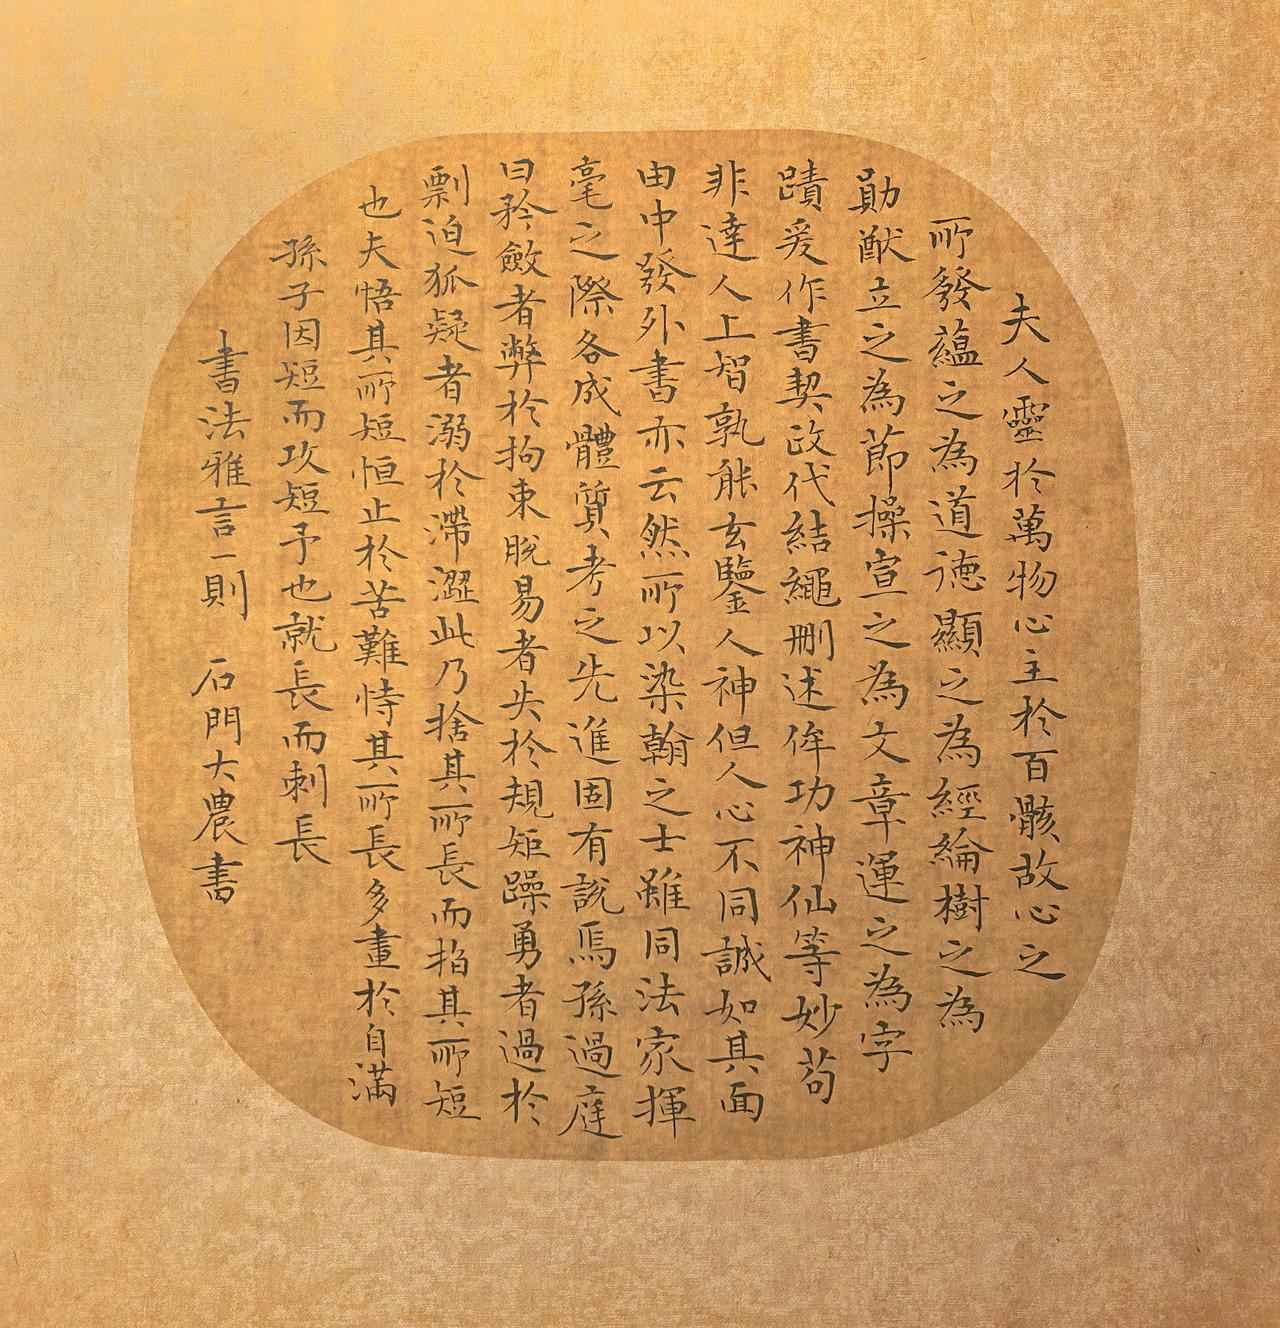 夫人靈於萬物心主於百骸故心之
所發蘊之為道德顯之為經綸樹之為
勛猷立之為節操宣之為文章運之為字
蹟爰作書契政代結繩刪述侔功神仙等妙苟
非達人上智孰能玄鑒人神但人心不同誠如其面
由中發外書亦云然所以染翰之士雖同法家揮
毫之際各成體質考之先進固有說焉孫過庭
曰矜斂者弊於拘束脫易者失於規矩躁勇者過於
剽迫狐疑者溺於滯澀此乃捨其所長而指其所短
也夫悟其所短恒止於苦難恃其所長多畫於自滿
孫子因短而攻短予也就長而刺長
書法雅言一則 石門大農書